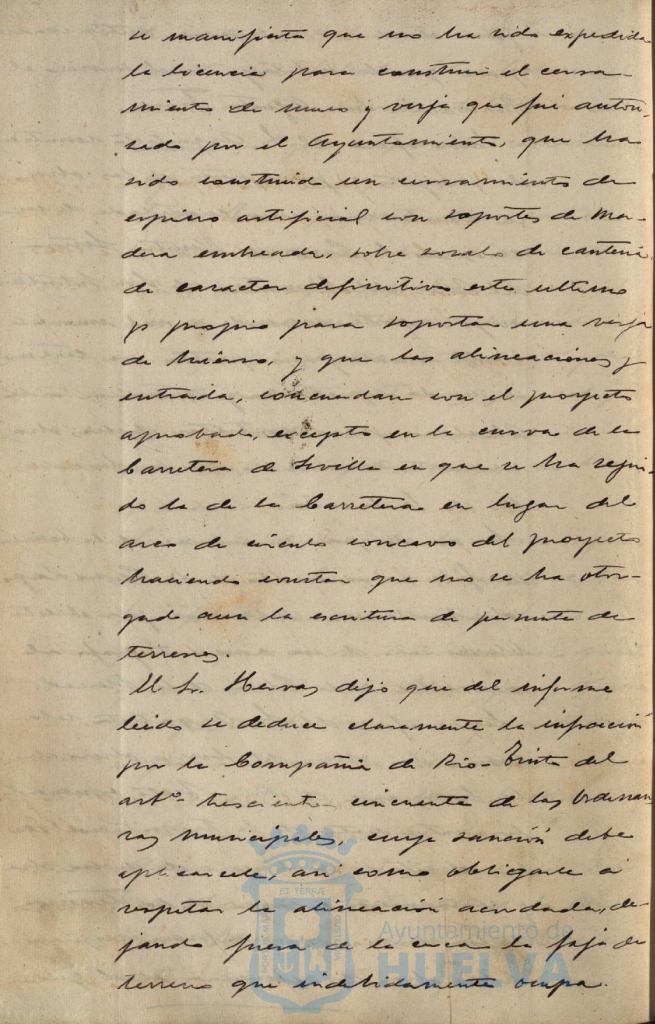 se manifiesta que no ha sido expedida
la licencia para construir el cerra-
miento de muro y verja que fué autori-
zado por el Ayuntamiento, que ha
sido construido un cerramiento de
espino artificial con soportes de ma-
dera embreada, sobre zocalo de canteria
de caracter definitivo este ultimo
y propio para soportar una verja
de hierro, y que las alineaciones y
entrada, concuerdan con el proyecto
aprobado, excepto en la curva de la
Carretera de Sevilla en que se ha segui-
do la de la Carretera en lugar del
arco de circulo concavo del proyecto
haciendo constar que no se ha otor-
gado aun la escritura de permuta de
terrenos.
El Sr. Hervas dijo que del informe
leido se deduce claramente la infracción
por la Compañia de Rio-Tinto del
artº trescientos cincuenta de las Ordenan-
zas Municipales, cuya sanción debe
aplicarsele, asi como obligarle á
respetar la alineación acordada, de-
jando fuera de la cerca la faja de
terreno que indebidamente ocupa.
ET TERRÆ
Ayuntamiento de
HUELVA